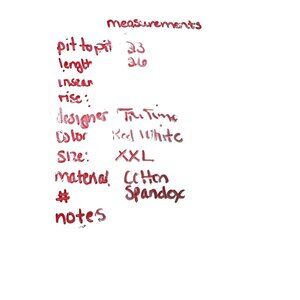 measurements
pit to pit 23
length 26
inseam
rise:
designer
Color Red White
Size: XXL
material Cotton
# Spandex
notes